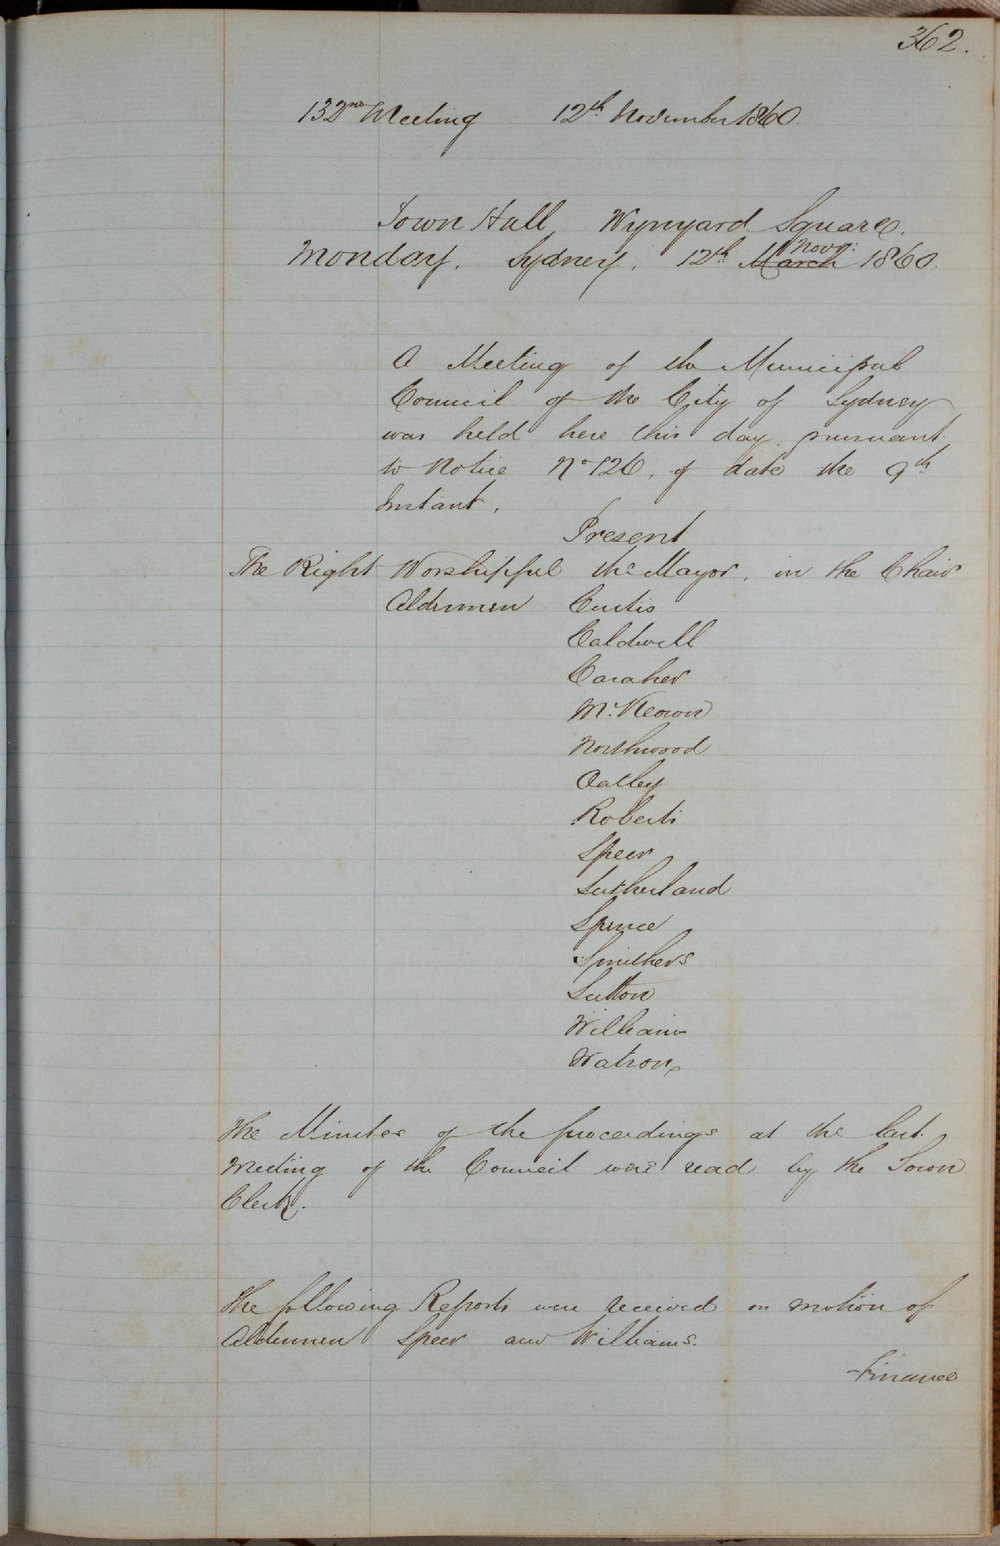 362.
132nd Meeting 12th November 1860.
Town Hall, Wynyard Square.
Novr:
Monday, Sydney, 12th March 1860.
A Meeting of the Municipal
Council of the City of Sydney
was held here this day, pursuant
to Notice No 126, of date the 9th
Instant.
Present
The Right Worshipful the Mayor, in the Chair
Aldermen Curtis
Caldwell
Caraher
McKeown
Northwood
Oatley
Roberts
Speer
Sutherland
Spence
Smithers
Sutton
Williams
Watson
The Minutes of the proceedings at the last
Meeting of the Council were read by the Town
Clerk.
The following Reports were received on motion of
Aldermen Speer and Williams.
Finance